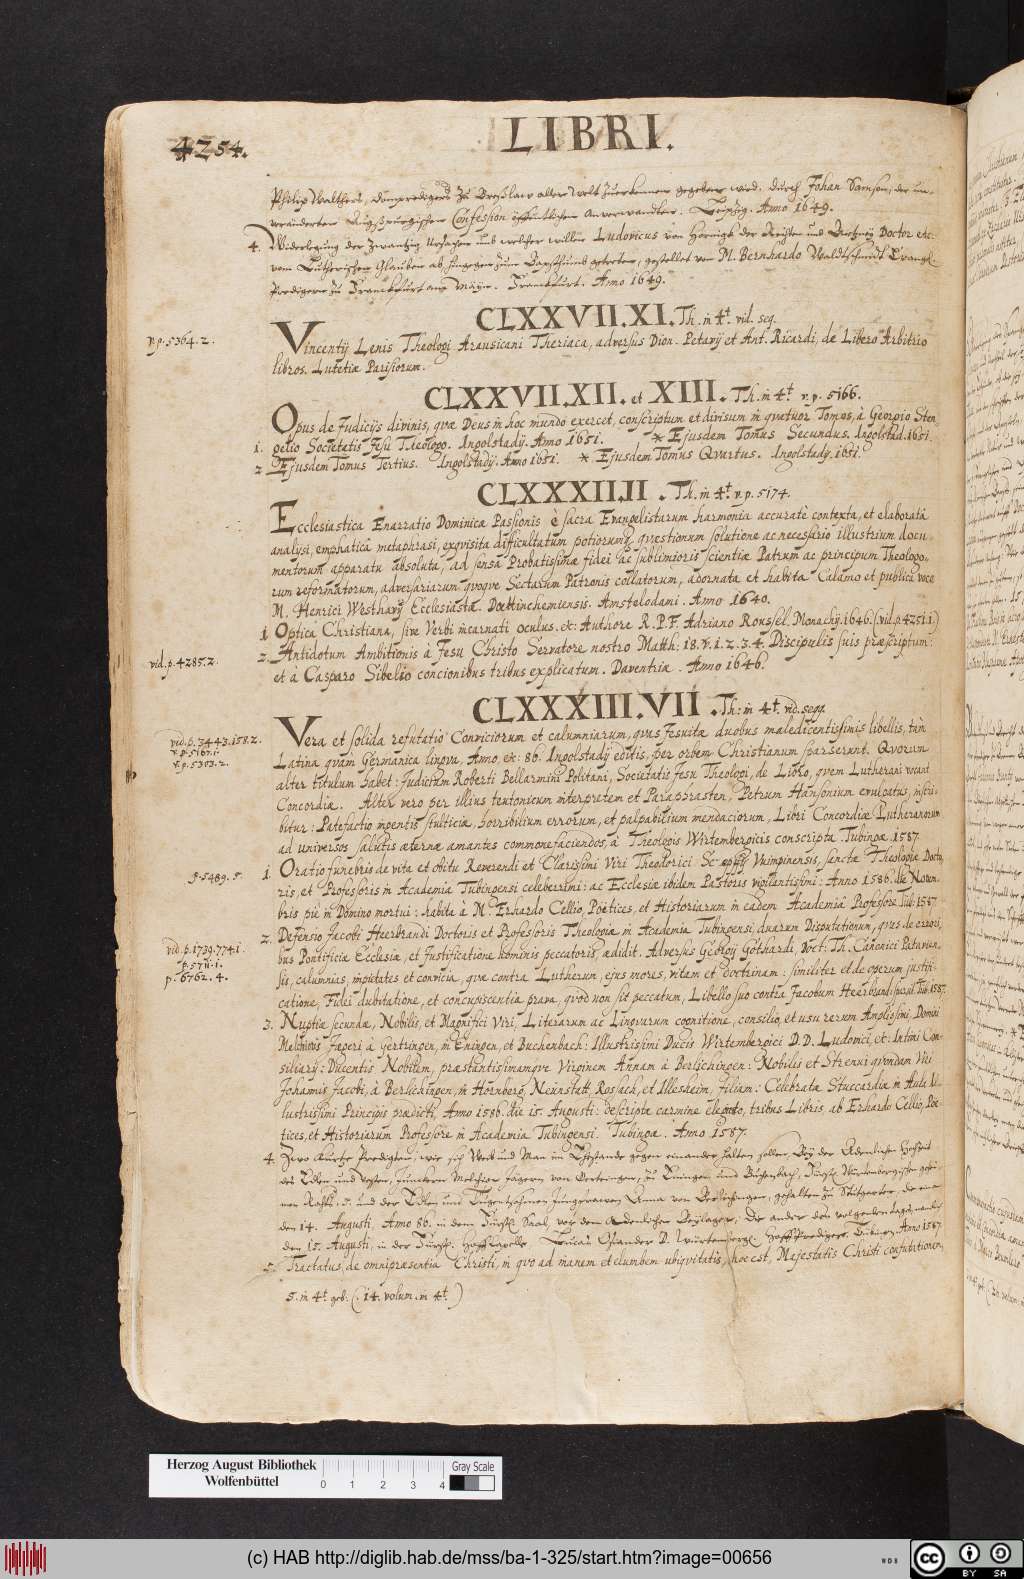 4254.
LIBRI.
Philip Walthers, Dompredigers zu Breßlaw aller Welt zuerkennen gegeben wird. durch Johan Samson, der un-
veränderten Augspurgischen Confession öffentlichen Anverwandten. Leipzig. Anno 1649.
4. Widerlegung der Zwantzig Ursachen umb welcher willen Ludovicus von Hörnigk der Rechten und Artzney Doctor etc.
vom Lutherischen Glauben ab hingegen zum Bapsthumb getreten, gestellet von M. Bernhardo Waldtschmidt Evangel.
Predigern zu Franckfurt am Mayn. Franckfurt. Anno 1649.
CLXXVII.XI. Th. in 4t. vid. seq.
v.p. 5364.2.
Vincentij Lenis Theologi Arausicani Theriaca, adversus Dion. Petavij et Ant. Ricardi, de Libero Arbitrio
libros. Lutetiæ Parisiorum.
CLXXVII.XII. et XIII. Th. in 4t. v.p. 5166.
Opus de Judicijs divinis, quæ Deus in hoc mundo exercet, conscriptum et divisum in quatuor Tomos, à Georgio Sten
1. gelio Societatis Jesu Theologo. Ingolstadij. Anno 1651. * Ejusdem Tomus Secundus. Ingolstad. 1651.
2 Ejusdem Tomus Tertius. Ingolstadij. Anno 1651. * Ejusdem Tomus Qvartus. Ingolstadij. 1651.
CLXXXII.II. Th. in 4t. v.p. 5174.
Ecclesiastica Enarratio Dominicæ Passionis è sacra Evangelistarum harmonia accuratè contexta, et elaboratâ
analysi, emphaticâ metaphrasi, exqvisita difficultatum potiorumq; qvæstionum solutione ac necessario illustrium docu
mentorum apparatu absoluta, ad sensa Probatissimæ fidei ac sublimioris scientiæ Patrum ac principum Theologo-
rum reformatorum, adversariarum qvoqve Sectarum Patronis collatorum, adornata et habita Calamo et publicâ voce
M. Henrici Westhavij Ecclesiastæ Doettinchemiensis. Amstelodami. Anno 1640.
1 Optica Christiana, sive Verbi incarnati oculus. etc. Authore R.P.F. Adriano Roussel. Monachij. 1646. (vid. p. 4251.1.)
vid. p. 4285.2.
2. Antidotum Ambitionis à Jesu Christo Servatore nostro Matth: 18. v. 1. 2. 3. 4. Discipulis suis præscriptum:
et à Casparo Sibelio concionibus tribus explicatum. Daventriæ. Anno 1646.
CLXXXIII.VII. Th: in 4t. vid. seqq.
vid. p. 3443.158.2.
v.p. 5167.1.
v.p. 5303.2.
Vera et solida refutatio Conviciorum et calumniarum, quas Jesuitæ duobus maledicentissimis libellis, tùm
Latina qvàm Germanica lingua, Anno, etc: 86. Ingolstadij editis, per orbem Christianum sparserunt. Qvorum
alter titulum habet: Judicium Roberti Bellarmini Politani, Societatis Jesu Theologi, de Libro, qvem Lutherani vocant
Concordiæ. Alter vero per illius teutonicum interpretem et Paraphrasten, Petrum Hansonium evulgatus, inscri-
bitur: Patefactio ingentis stultitiæ, horribilium errorum, et palpabilium mendaciorum, Libri Concordiæ Lutheranorum
ad universos salutis æternæ amantes commonefaciendos, à Theologis Wirtembergicis conscripta. Tubingæ. 1587.
p. 5489.5.
1. Oratio funebris de vita et obitu Reverendi et Clarissimi Viri Theodorici Schepffij Wuimpinensis, sanctæ Theologiæ Docto
ris, et Professoris in Academia Tubingensi celeberrimi: ac Ecclesiæ ibidem Pastoris vigilantissimi: Anno 1586. die Novem-
bris piè in Domino mortui: habita à M. Erhardo Cellio, Poëtices, et Historiarum in eadem Academiâ Professore. Tub: 1587.
vid. p. 1739.774.1.
p. 5711.1.
p. 6762.4.
2. Defensio Jacobi Heerbrandi Doctoris et Professoris Theologiæ in Academia Tubingensi, duarum Disputationum, quas de errori-
bus Pontificiæ Ecclesiæ, et Justificatione hominis peccatoris, ædidit. Adversus Georgij Gothardi, Doct: Th. Canonici Pataviun-
sis, calumnias, impietates et convicia, qvæ contra Lutherum, ejus mores, vitam et doctrinam: similiter et de operum justifi-
catione, Fidei dubitatione, et concupiscentia prava, qvòd non sit peccatum, Libello suo contra Jacobum Heerbrandi sparsit. Tub. 1587.
3. Nuptiæ secundæ, Nobilis, et Magnifici Viri, Literarum ac Lingvarum cognitione, consilio, et usu rerum Amplissimi, Domini
Melchioris Jægeri à Gertringen, in Eningen, et Buchenbach: Illustrissimi Ducis Wirtembergici D.D. Ludovici, etc: Intimi Con-
siliarij: Ducentis Nobilem, præstantissimamqve Virginem Annam à Berlichingen: Nobilis et Strenui qvondam Viri
Johannis Jacobi, à Berlichingen, in Hornberg, Neunstatt, Rossach, et Illesheim, filiam: Celebratæ Stuccardiæ in Aula Il-
lustrissimi Principis prædicti, Anno 1586. die 15. Augusti: descripta carmine elegiaco, tribus Libris, ab Erhardo Cellio, Poë-
tices, et Historiarum Professore in Academia Tubingensi. Tubingæ. Anno 1587.
4. Zwo Kurtze Predigten, wie sich Weib und Man im Ehestande gegen einander halten sollen, Bey der Adenlichen Hochzeit
des Edlen und Vesten, Junckern Melchior Jägern von Gertringen, zu Eningen und Buchenbach, Fürstl. Würtembergischen gehei-
men Rahts. etc. und der Edlen und Tugentsamen Jungfrawen Anna von Berlichingen, gehalten zu Stutgarten, die eine
den 14. Augusti, Anno 86. in dem Fürstl. Saal, vor dem Adenlichen Beylager, Die ander den volgenden tag, nemlich
den 15. Augusti, in der Fürstl. Hoff Capelle. Lucas Osiander D. Würtembergl. Hoff Prediger. Tübingen. Anno 1587.
5. Tractatus, de omnipræsentia Christi, in qvo ad manem et elumbem ubiqvitatis, hoc est, Majestatis Christi confutationem,
5. in 4t. geb. (.14. volum. in 4t.)
Herzog August Bibliothek
Wolfenbüttel
0 1 2 3 4
Gray Scale
(c) HAB http://diglib.hab.de/mss/ba-1-325/start.htm?image=00656
WDB
cc BY SA